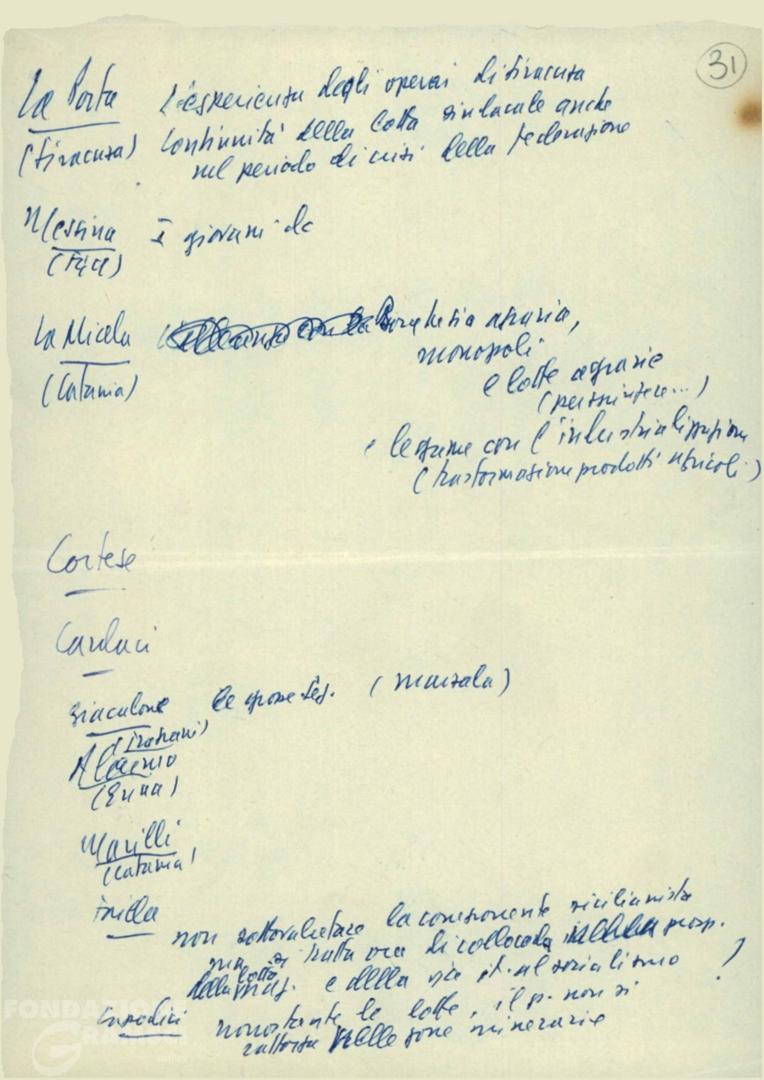 31
La Porta L'esperienza degli operai di Siracusa
(Siracusa) Continuità della lotta sindacale anche
nel periodo di crisi della Federazione
Messina I giovani dc
La Micela borghesia agraria,
(Catania) monopoli
e lotte agrarie
e legame con l'industrializzazione
(trasformazione prodotti agricoli)
Cortese
Carluci
Giacalone le (Marsala)
(Trapani)
(Enna)
Marilli
(Catania)
non sottovalutare la componente sicilianista
ma si tratta ora di collocarla prosp.
della e della via it. al socialismo
nonostante le lotte, il p. non si
rafforza nelle zone minerarie
FONDAZIONE
GRAMSCI